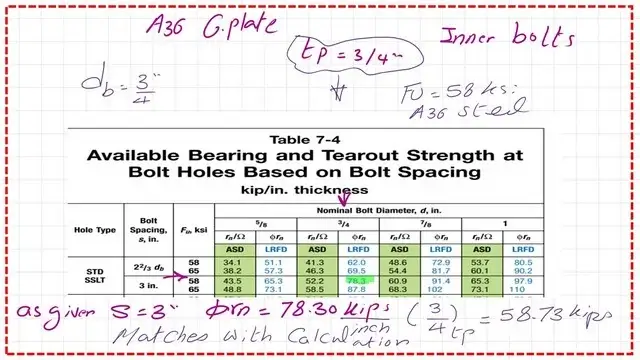 A36 G.plate
Inner bolts
tp = 3/4"
db = 3"/4
FU = 58 ksi
A36 steel
Table 7-4
Available Bearing and Tearout Strength at
Bolt Holes Based on Bolt Spacing
kip/in. thickness
Hole Type Bolt Spacing, s, in. Fu, ksi Nominal Bolt Diameter, d, in.
5/8 3/4 7/8 1
rn/Ω ϕrn rn/Ω ϕrn rn/Ω ϕrn rn/Ω ϕrn
ASD LRFD ASD LRFD ASD LRFD ASD LRFD
STD SSLT 2 2/3 db 58 34.1 51.1 41.3 62.0 48.6 72.9 53.7 80.5
65 38.2 57.3 46.3 69.5 54.4 81.7 60.1 90.2
3 in. 58 43.5 65.3 52.2 78.3 60.9 91.4 65.3 97.9
65 48.8 73.1 58.5 87.8 68.3 102 73.1 110
as given S = 3" ϕrn = 78.30 kips/inch (3/4) tp = 58.73 kips
Matches with Calculation